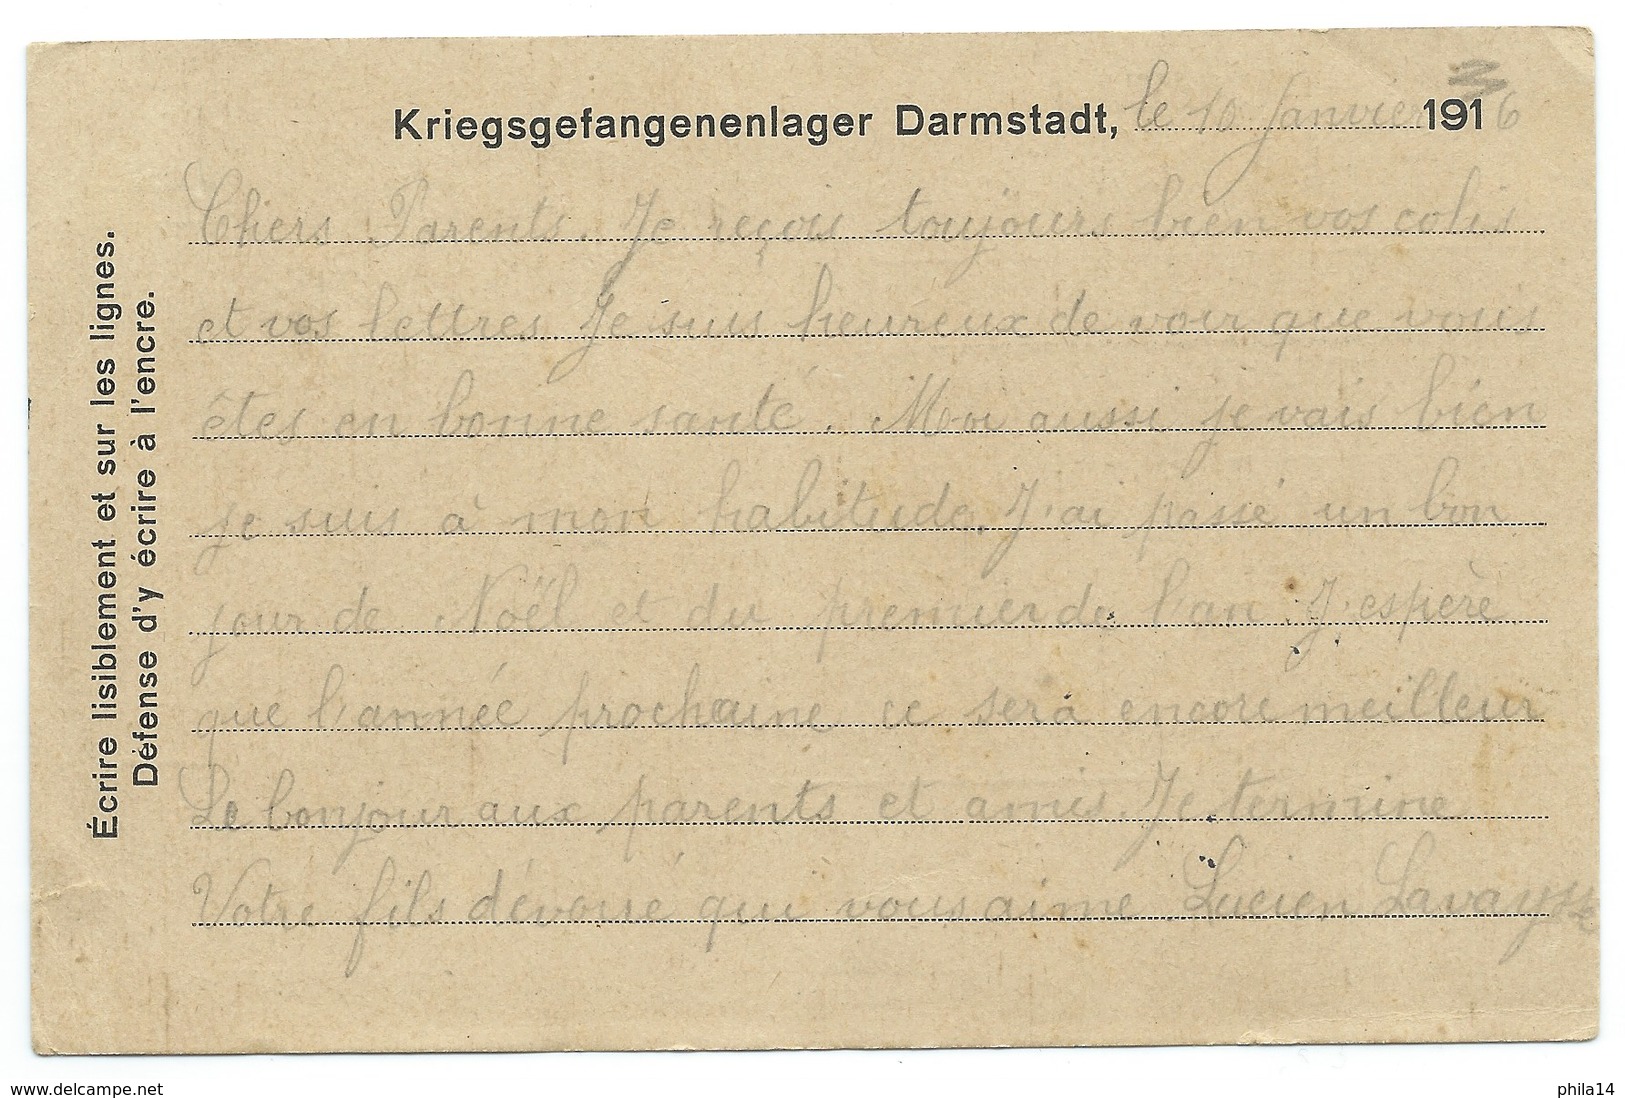 Kriegsgefangenenlager Darmstadt, le 10 Janvier 1916
Chers Parents. Je reçois toujours bien vos colis
et vos lettres. Je suis heureux de voir que vous
êtes en bonne santé. Moi aussi je vais bien
je suis à mon habitude. J'ai passé un bon
jour de Noël et du premier de l'an. J'espère
que l'année prochaine ce sera encore meilleur
Le bonjour aux parents et amis. Je termine
Votre fils dévoué qui vous aime Lucien Lavaysse
Écrire lisiblement et sur les lignes.
Défense d'y écrire à l'encre.
www.delcampe.net
phila14